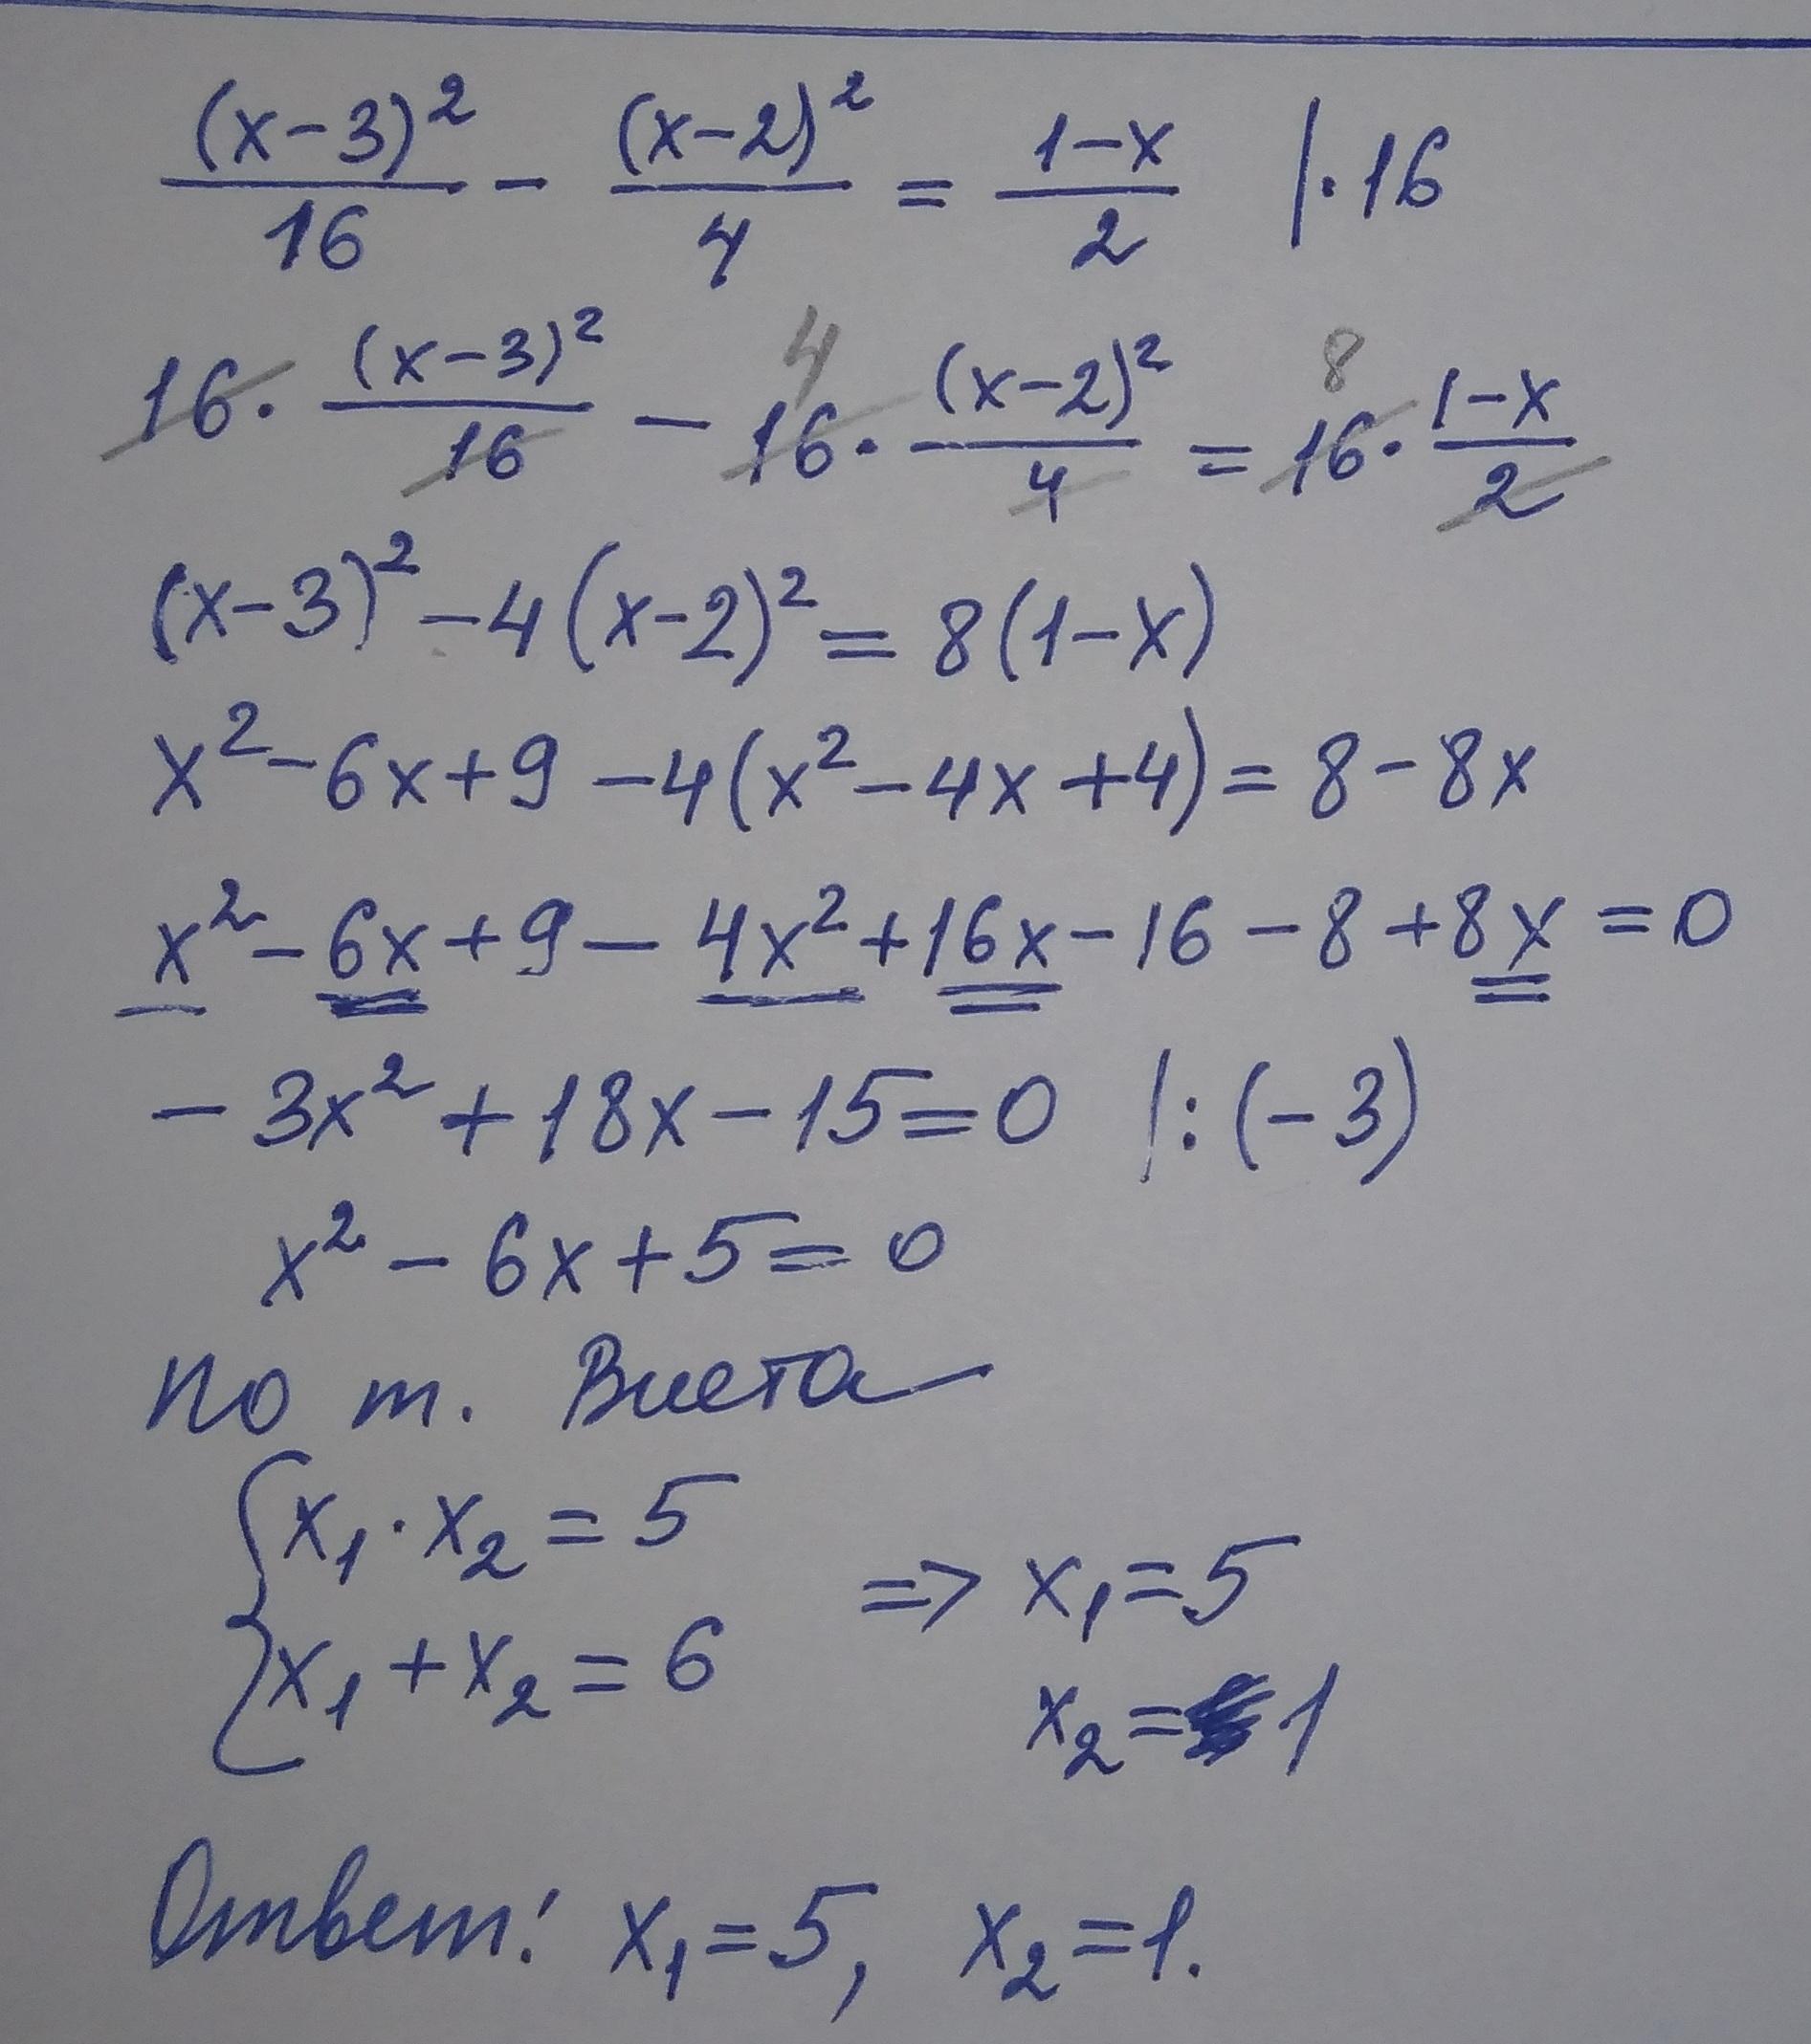 (x-3)²/16 - (x-2)²/4 = (1-x)/2 |·16
16· (x-3)²/16 - 16· (x-2)²/4 = 16· (1-x)/2
4 8
(x-3)² -4(x-2)² = 8(1-x)
x² -6x+9 -4(x²-4x+4) = 8-8x
x² -6x+9 - 4x²+16x-16-8+8x=0
-3x²+18x-15=0 |:(-3)
x² - 6x+5=0
по т. Виета
{x₁·x₂=5
{x₁+x₂=6
=> x₁=5
x₂=1
Ответ: x₁=5, x₂=1.